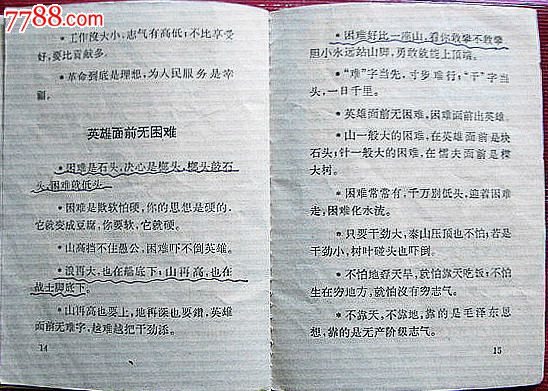 7788.com
•工作没大小,志气有高低;不比享受
好,要比贡献多。
•革命到底是理想,为人民服务是幸
福。
英雄面前无困难
•困难是石头,决心是榔头,榔头敲石
头,困难就低头。
•困难是欺软怕硬,你的思想是硬的,
它就变成豆腐,你要软,它就硬。
•山高挡不住愚公,困难吓不倒英雄。
•浪再大,也在船底下;山再高,也在
战士脚底下。
•山再高也要上,地再深也要钻,英雄
面前无难字,越难越把干劲添。
14
•困难好比一座山,看你敢攀不敢攀
胆小永远站山脚,勇敢就能上顶端。
•“难”字当先,寸步难行;“干”字当
头,一日千里。
•英雄面前无困难,困难面前出英雄。
•山一般大的困难,在英雄面前是块
石头;针一般大的困难,在懦夫面前是棵
大树。
•困难常常有,千万别低头,迎着困难
走,困难化水流。
•只要干劲大,泰山压顶也不怕;若是
干劲小,树叶碰头也吓倒。
•不怕地孬天旱,就怕靠天吃饭;不怕
生在穷地方,就怕没有穷志气。
•不靠天,不靠地,靠的是毛泽东思
想,靠的是无产阶级志气。
15